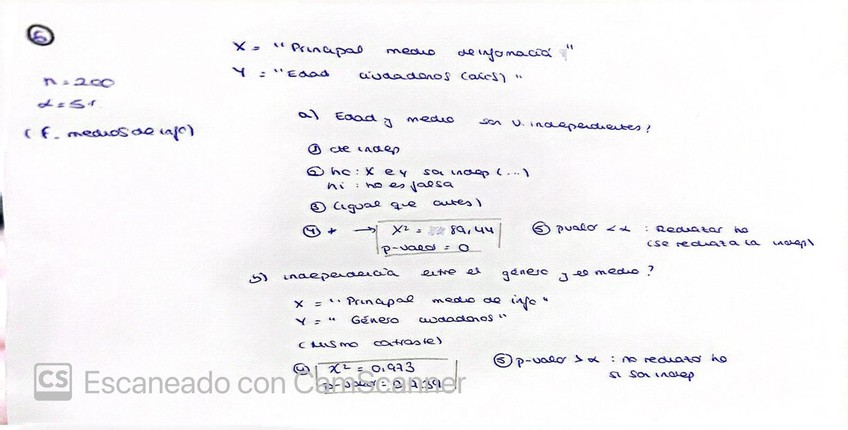 6
X = "Principal medio de infomació"
Y = "Edad ciudadanos (años)"
n = 200
α = 5%
(F. medios de info)
a) Edad y medio son v. independientes?
① cte indep
② ho: X e Y son indep (...)
hi: ho es falsa
③ (igual que antes)
④ + → X² = 89,44
p-valor = 0
⑤ pvalor < α : Rechazar ho
(se rechaza la indep)
b) independencia entre el género y el medio?
X = "Principal medio de info"
Y = "Género ciudadanos"
(mismo contraste)
④ X² = 0.973
p-valor =
⑤ p-valor > α : no rechazar ho
si son indep
CS Escaneado con CamScanner